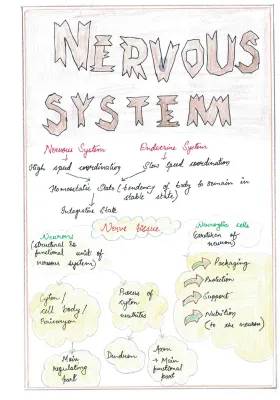 NERVOUS
SYSTEM
Nervous System
Endocrine System
High speed coordination
Slow speed coordination
Homeostatic State (tendency of body to remain in
stable state)
Integrative State
Nerve tissue
Neurons
(structural &
functional unit of
nervous system)
Neuroglia cells
(caretaker of
neuron)
Packaging
Protection
Support
Nutrition
(to the neuron)
Cyton /
cell body /
Perikaryon
Process of
cyton
neurites
Main
regulating
part
Dendron
Axon
Main
functional
part